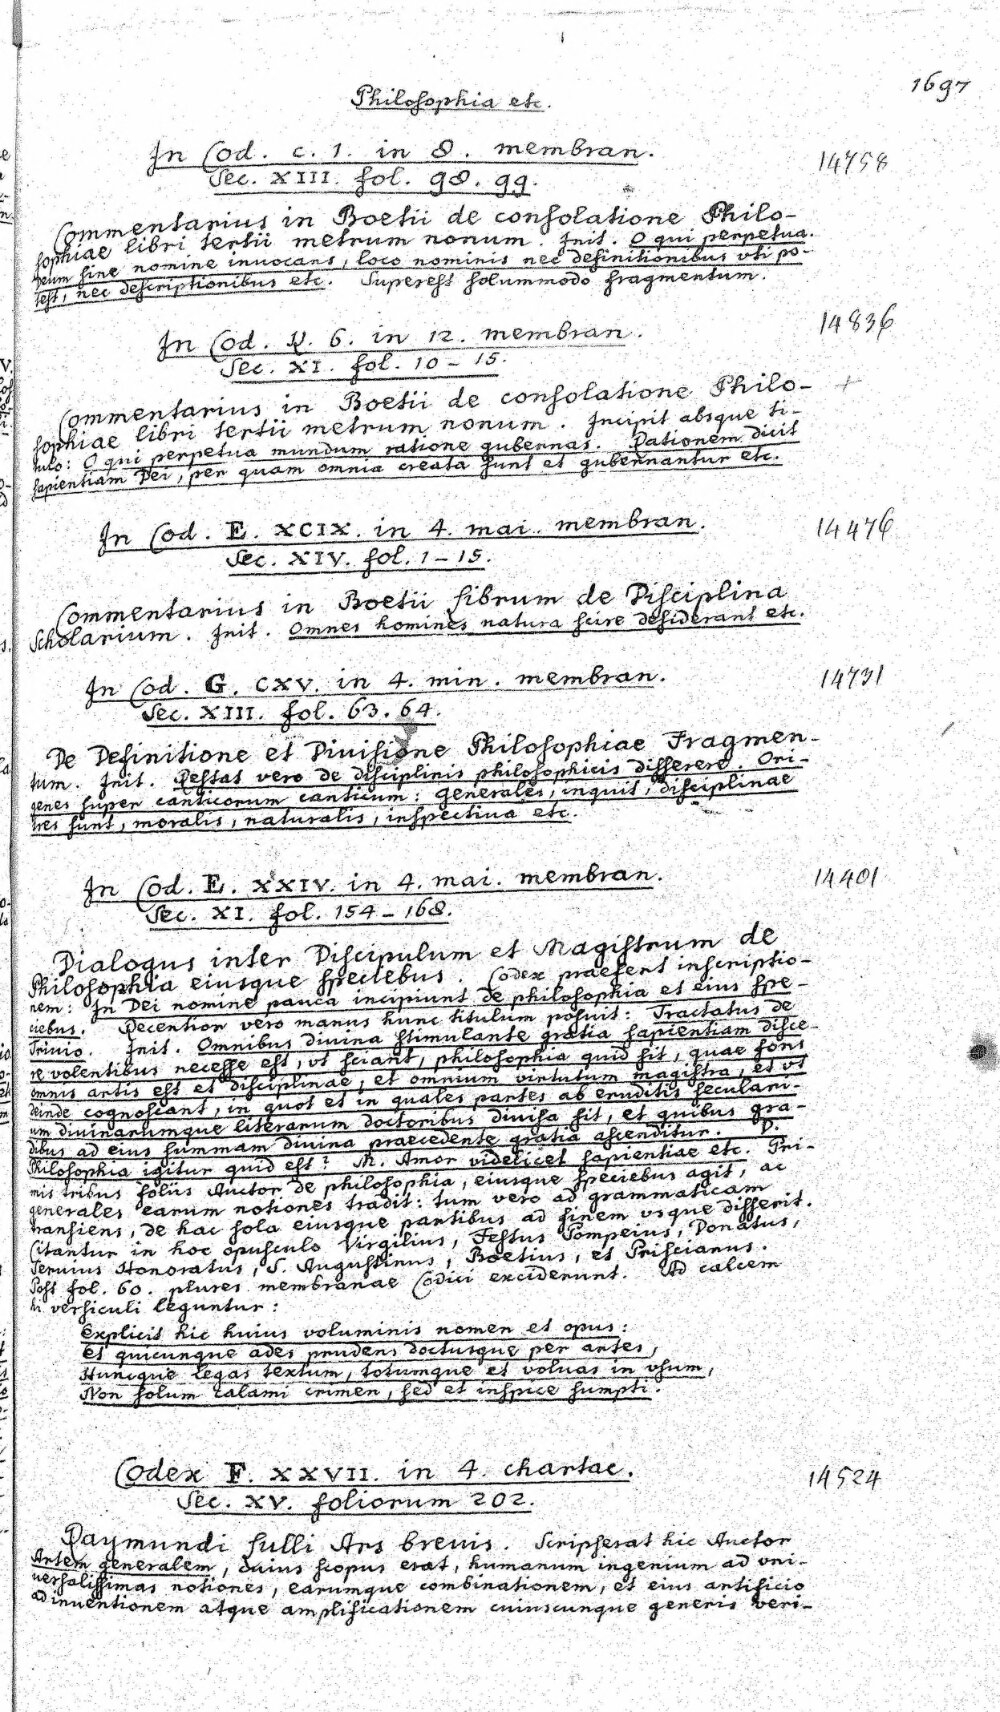 1697
Philosophia etc.
In Cod. c. 1. in 8. membran.
14758
Sec. XIII. fol. 98. 99.
Commentarius in Boetii de consolatione Philo-
sophiae libri tertii metrum nonum. Init. O qui perpetua.
Deum sine nomine invocans, loco nominis nec definitionibus vti po-
test, nec descriptionibus etc. Superest solummodo fragmentum.
In Cod. 6. in 12. membran.
14836
Sec. XI. fol. 10-15.
Commentarius in Boetii de consolatione Philo- +
sophiae libri tertii metrum nonum. Incipit absque ti-
tulo: O qui perpetua mundum ratione gubernas. Rationem dicit
sapientiam Dei, per quam omnia creata sunt et gubernantur etc.
In Cod. E. XCIX. in 4. mai. membran.
14476
Sec. XIV. fol. 1-15.
Commentarius in Boetii librum de Disciplina
Scholarium. Init. Omnes homines natura scire desiderant etc.
In Cod. G. CXV. in 4. min. membran.
14731
Sec. XIII. fol. 63. 64.
De Definitione et Diuisione Philosophiae Fragmen-
tum. Init. Restat vero de disciplinis philosophicis disserere. Ori-
genes super canticorum canticum: generales, inquit, disciplinae
tres sunt, moralis, naturalis, inspectiua etc.
In Cod. E. XXIV. in 4. mai. membran.
14401
Sec. XI. fol. 154-168.
Dialogus inter Discipulum et Magistrum de
Philosophia eiusque speciebus. Codex praefert inscriptio-
nem: In Dei nomine pauca incipiunt de philosophia et eius spe-
ciebus. Recentior vero manus hunc titulum posuit: Tractatus de
Triuio. Init. Omnibus diuina stimulante gratia sapientiam disce-
re volentibus necesse est, vt sciant, philosophia quid sit, quae fons
omnis artis est et disciplinae, et omnium virtutum magistra, et vt
deinde cognoscant, in quot et in quales partes ab eruditis seculari-
um diuinarumque literarum doctoribus diuisa sit, et quibus gra-
dibus ad eius summam diuina praecedente gratia ascenditur. D.
Philosophia igitur quid est? M. Amor videlicet sapientiae etc. Pri-
mis tribus foliis Auctor de philosophia, eiusque speciebus agit, ac
generales earum notiones tradit: tum vero ad grammaticam
transiens, de hac sola eiusque partibus ad finem vsque disserit.
Citantur in hoc opusculo Virgilius, Festus Pompeius, Donatus,
Seruius Honoratus, S. Augustinus, Boetius, et Priscianus.
Post fol. 60. plures membranae Codici exciderunt. Ad calcem
hi versiculi leguntur:
Explicit hic huius voluminis nomen et opus:
Et quicunque ades prudens doctusque per artes,
Huncque legas textum, totumque et voluas in vsum,
Non solum calami crimen, sed et inspice sumpti.
Codex F. XXVII. in 4. chartac.
14524
Sec. XV. foliorum 202.
Raymundi Lulli Ars breuis. Scripserat hic Auctor
Artem generalem, cuius scopus erat, humanum ingenium ad vni-
versalissimas notiones, earumque combinationem, et eius artificio
ad inuentionem atque amplificationem cuiuscunque generis veri-